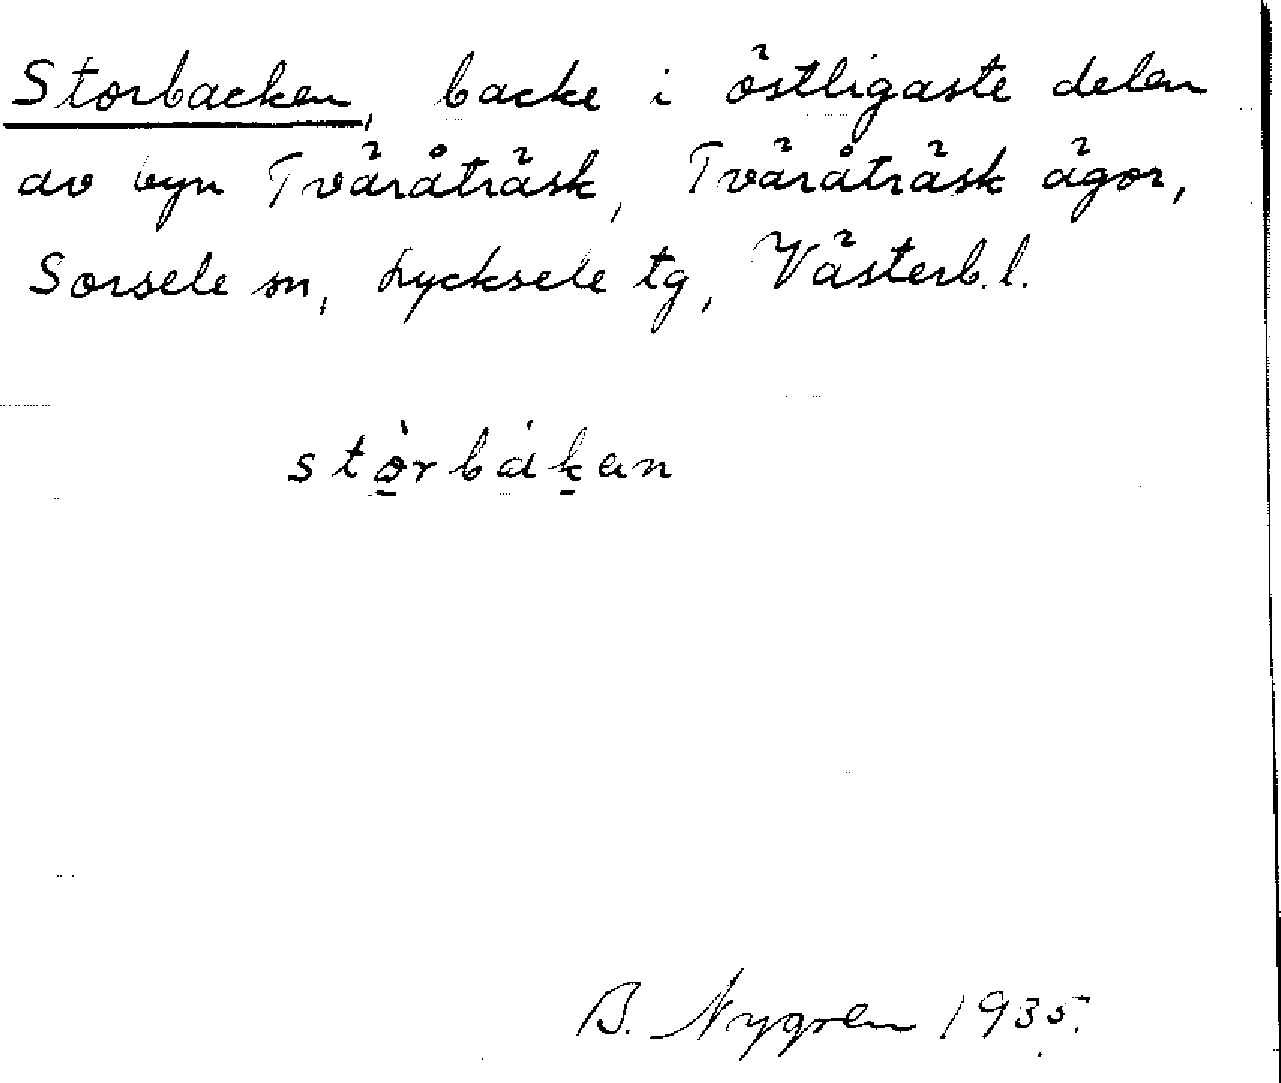 Storbacken, backe i östligaste delen
av byn Tväråträsk, Tväråträsk ägor,
Sorsele sn, Lycksele tg, Västerb. l.
stò̠rbák̠an
B. Nygren 1935.